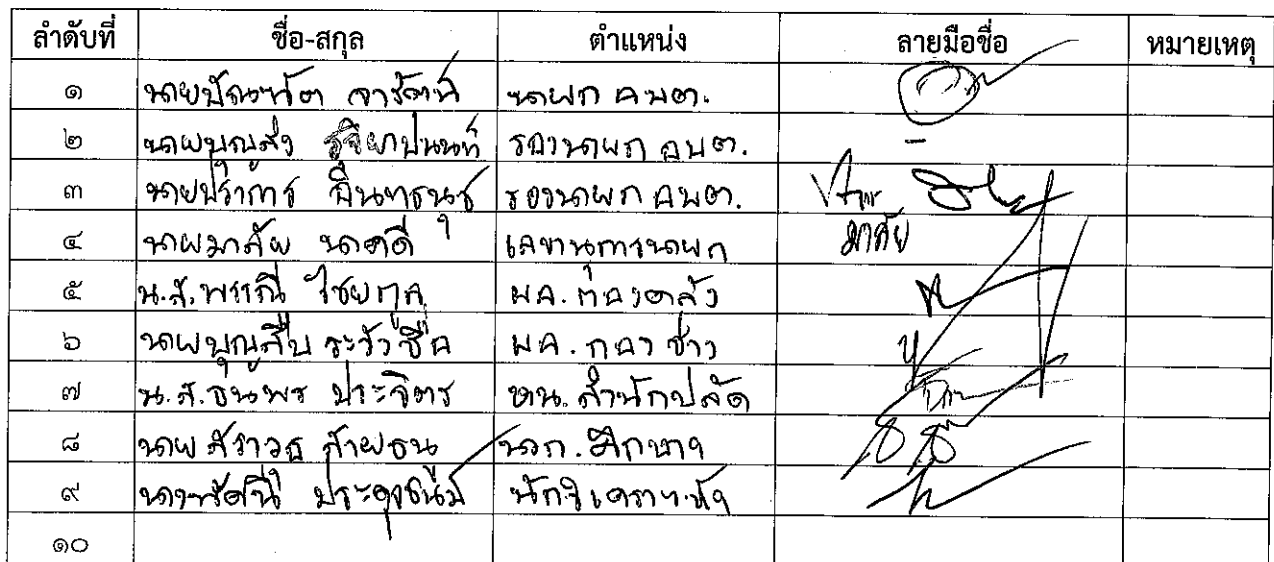 ลำดับที่ ชื่อ-สกุล ตำแหน่ง ลายมือชื่อ หมายเหตุ
๑ นายบัณฑิต จารัตน์ นายก อบต.
๒ นายบุญส่ง รุจิยาปนนท์ รองนายก อบต. -
๓ นายปราการ จินทรนุช รองนายก อบต.
๔ นายมาลัย นาคดี เลขานุการนายก มาลัย
๕ น.ส.พรรณี ไชยกุล ผอ. กองคลัง
๖ นายบุญสืบ ระวังชื่อ ผอ. กองช่าง
๗ น.ส.ธนพร ประจิตร หน. สำนักปลัด
๘ นายสราวุธ สายธนู นวก. ศึกษาฯ
๙ นางรัศนี นักวิเคราะห์ฯ
๑๐